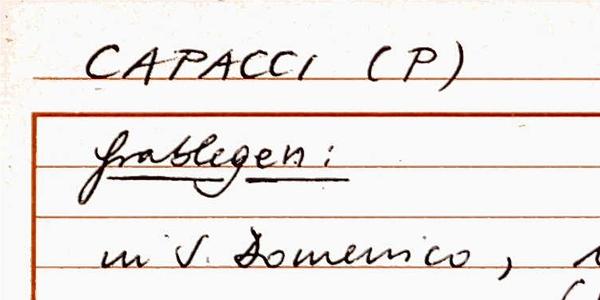 CAPACCI (P)
Grablegen:
in S. Domenico,